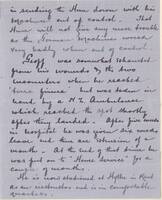 in sending the Hun down with his
machine out of control. That
Hun will not give any more trouble
as the machine crashed
very badly when out of control.
Geoff was somewhat exhausted
from his wounds & the two
encounters when he reached
terra firma but was taken in
hand by a N.Z. Ambulance
which reached the spot shortly
after they landed. After five weeks
in hospital he was given sick
leave and then an extension of a
month. At the end of that time he
was put on to "Home Service" for
a couple of months.
He is now stationed at Hythe in Kent
as an instructor and is in comfortable
quarters.